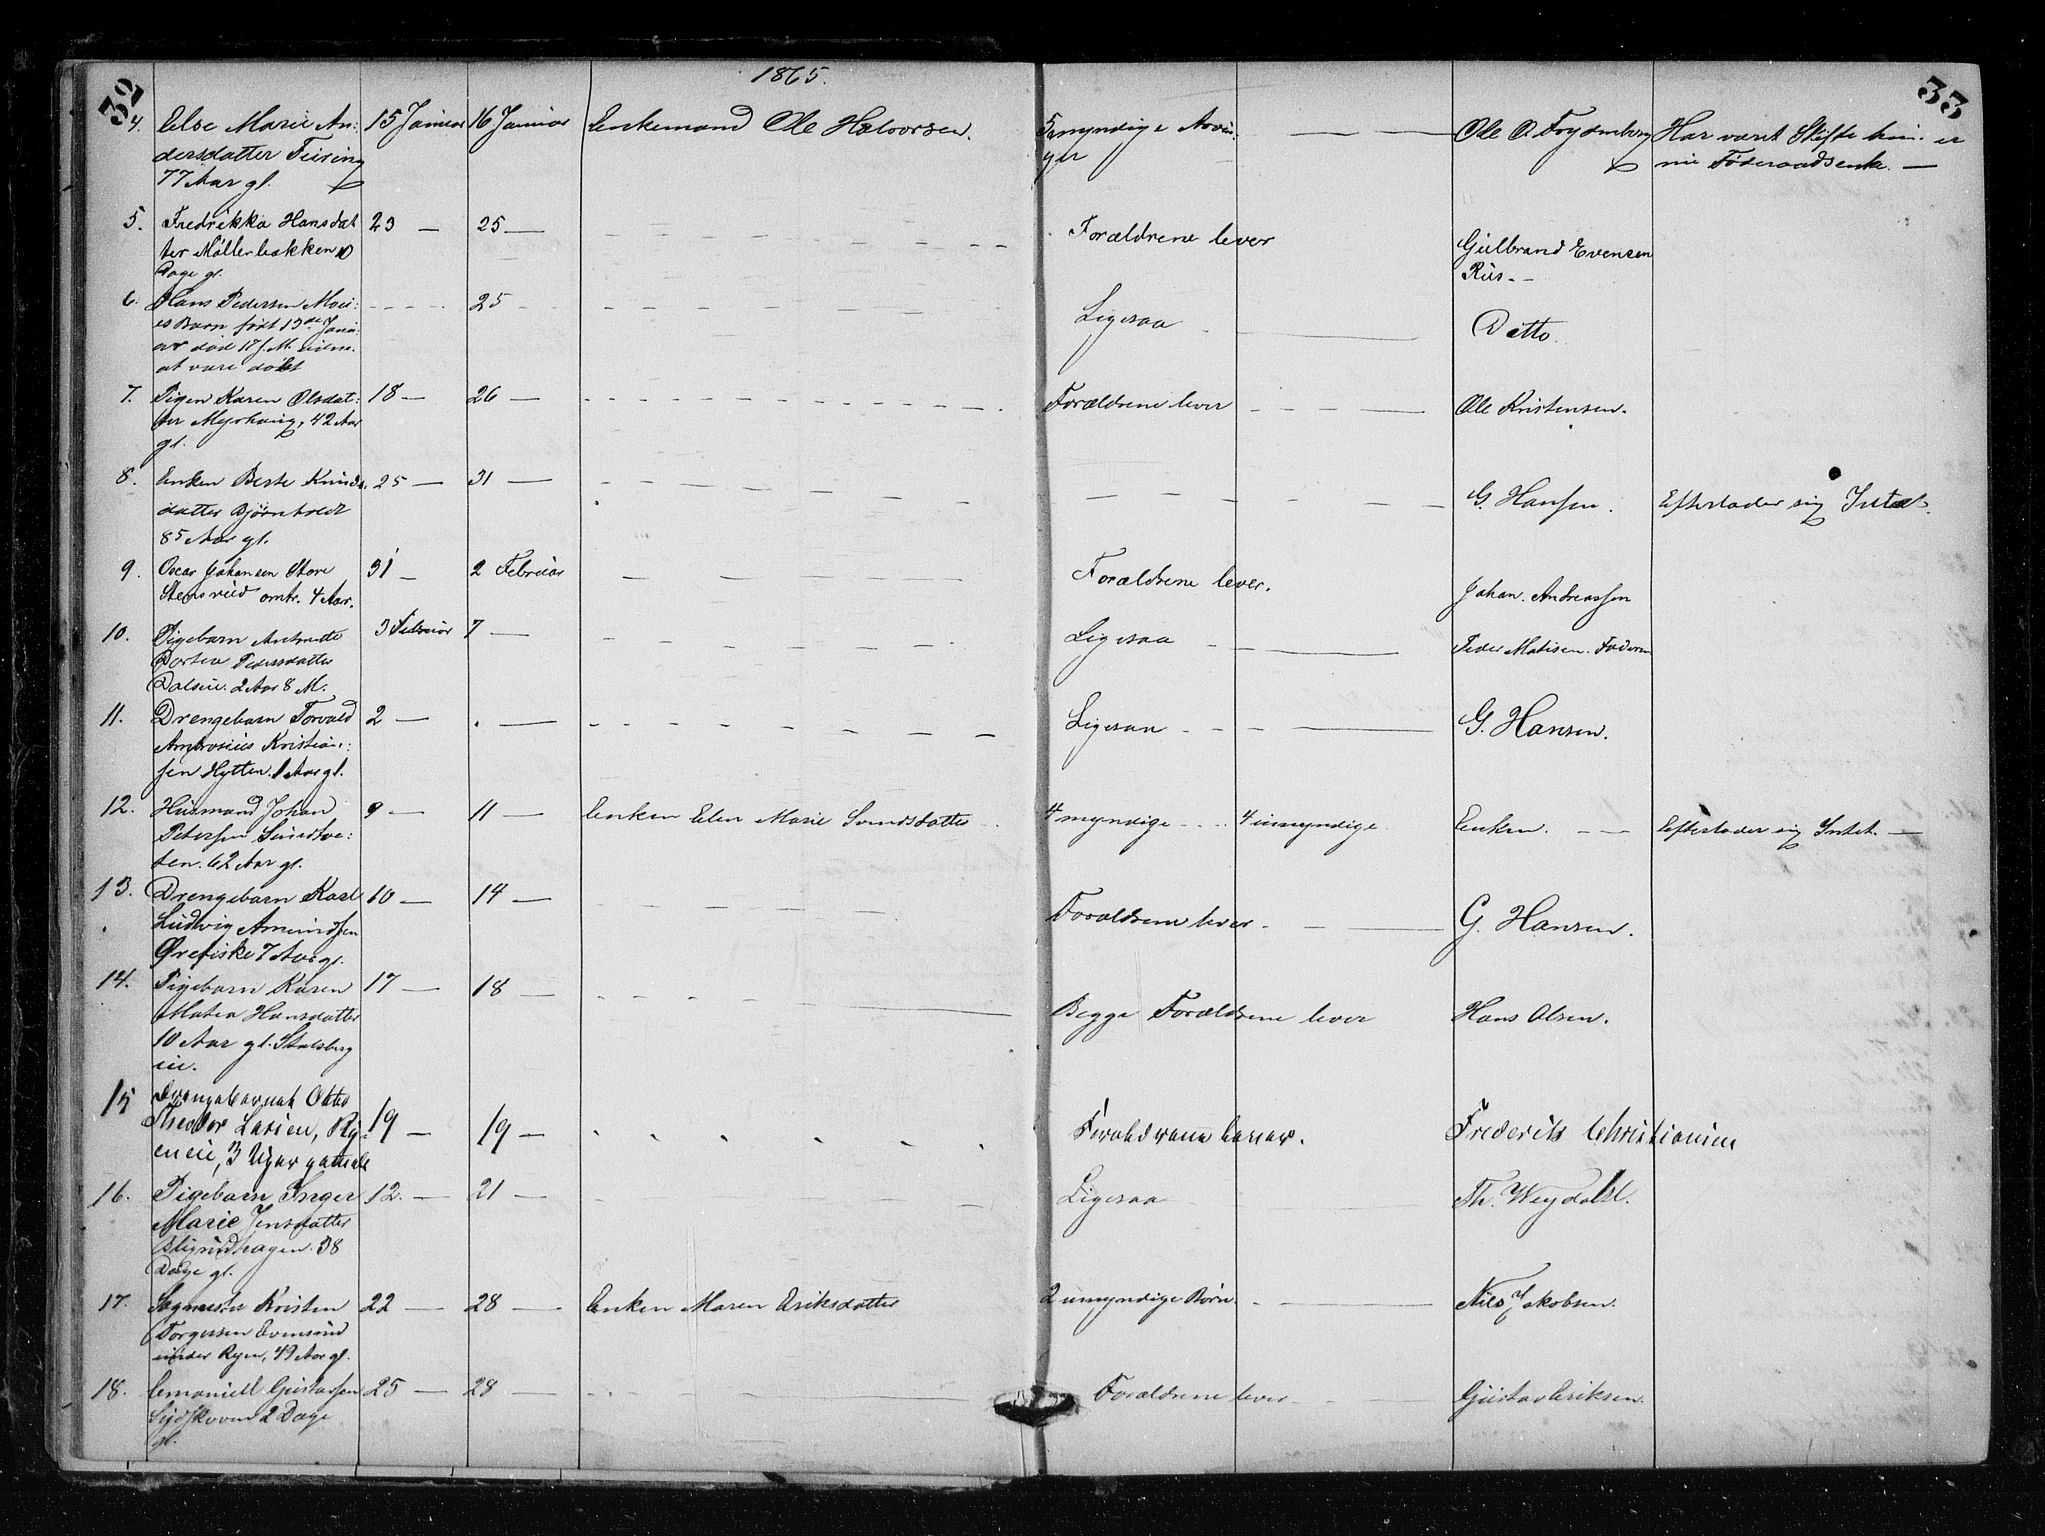 32
33
1865.
4. Else Marie An: 15 Januar 16 Januar Enkemand Ole Halvorsen. 5 myndige Arvin: — — Ole O. Frydenberg Har været Skifte hun er
dersdatter Teiring ger nu Føderaadsenke. —
77 Aar gl.
5. Fredrikka Hansdat 23 — 25 — Forældrene lever Gulbrand Evensen
ter Møllerbakken 10 Riis. —
Dage gl.
6. Hans Pedersen Moei: 25 Ligesaa — Ditto.
es Barn født 13de Janu:
ar død 17 f. M. uden
at være døbt
7. Pigen Karen Olsdat: 18 — 26 — Forældrene lever — Ole Kristensen.
ter Myrhaug, 42 Aar
gl.
8. Enken Berte Knuds 25 — 31 — G. Hansen. Efterlader sig Intet.
datter Bjørnholdt
85 Aar gl.
9. Oscar Johansen Store 31 — 2 Februar Forældrene lever. Johan. Andreassen
Stensrud omtr. 4 Aar.
10. Pigebarn 3 Februar 7 — Ligesaa — Peder Matisen. Faderen
Dortea Pedersdatter
Dalseie. 2 Aar 8 M.
11. Drengebarn Torvald 2 — . — Ligesaa — G. Hansen.
Ambrosius Kristian:
sen Hytten. 1 Aar gl.
12. Husmand Johan 9 — 11 — Enken Elen Marie Svendsdatter 4 myndige — 4 umyndige Enken. — Efterlader sig Intet. —
Petersen Sundtve:
ten. 62 Aar gl.
13. Drengebarn Karl 10 — 14 — Forældrene lever. — G. Hansen.
Ludvig Amundsen
Ørefiske 7 Aar gl.
14. Pigebarn Karen 17 — 18 — Begge Forældrene lever Hans Olsen.
Matea Hansdatter
10 Aar gl. Stalsberg
eie.
15 Drengebarnet Otto
Theodor Larsen, Ry: 19 — 19 — Forældrene lever. Frederik Christiansen
eneie, 3 Uger gammel
16. Pigebarn Inger 12. — 21 — Ligesaa Th. Weydahl.
Marie Jensdatter
Bligrudhagen. 38
Dage gl.
17. Sagmester Kristen 22 — 28 — Enken Maren Eriksdatter 2 umyndige Børn. — Nils Jakobsen.
Torgersen Evensrud
under Ryen, 49 Aar gl.
18. Emaniell Gustavsen 25 — 28 — Forældrene lever — Gustav Eriksen.
Sydskoven 2 Dage
gl.